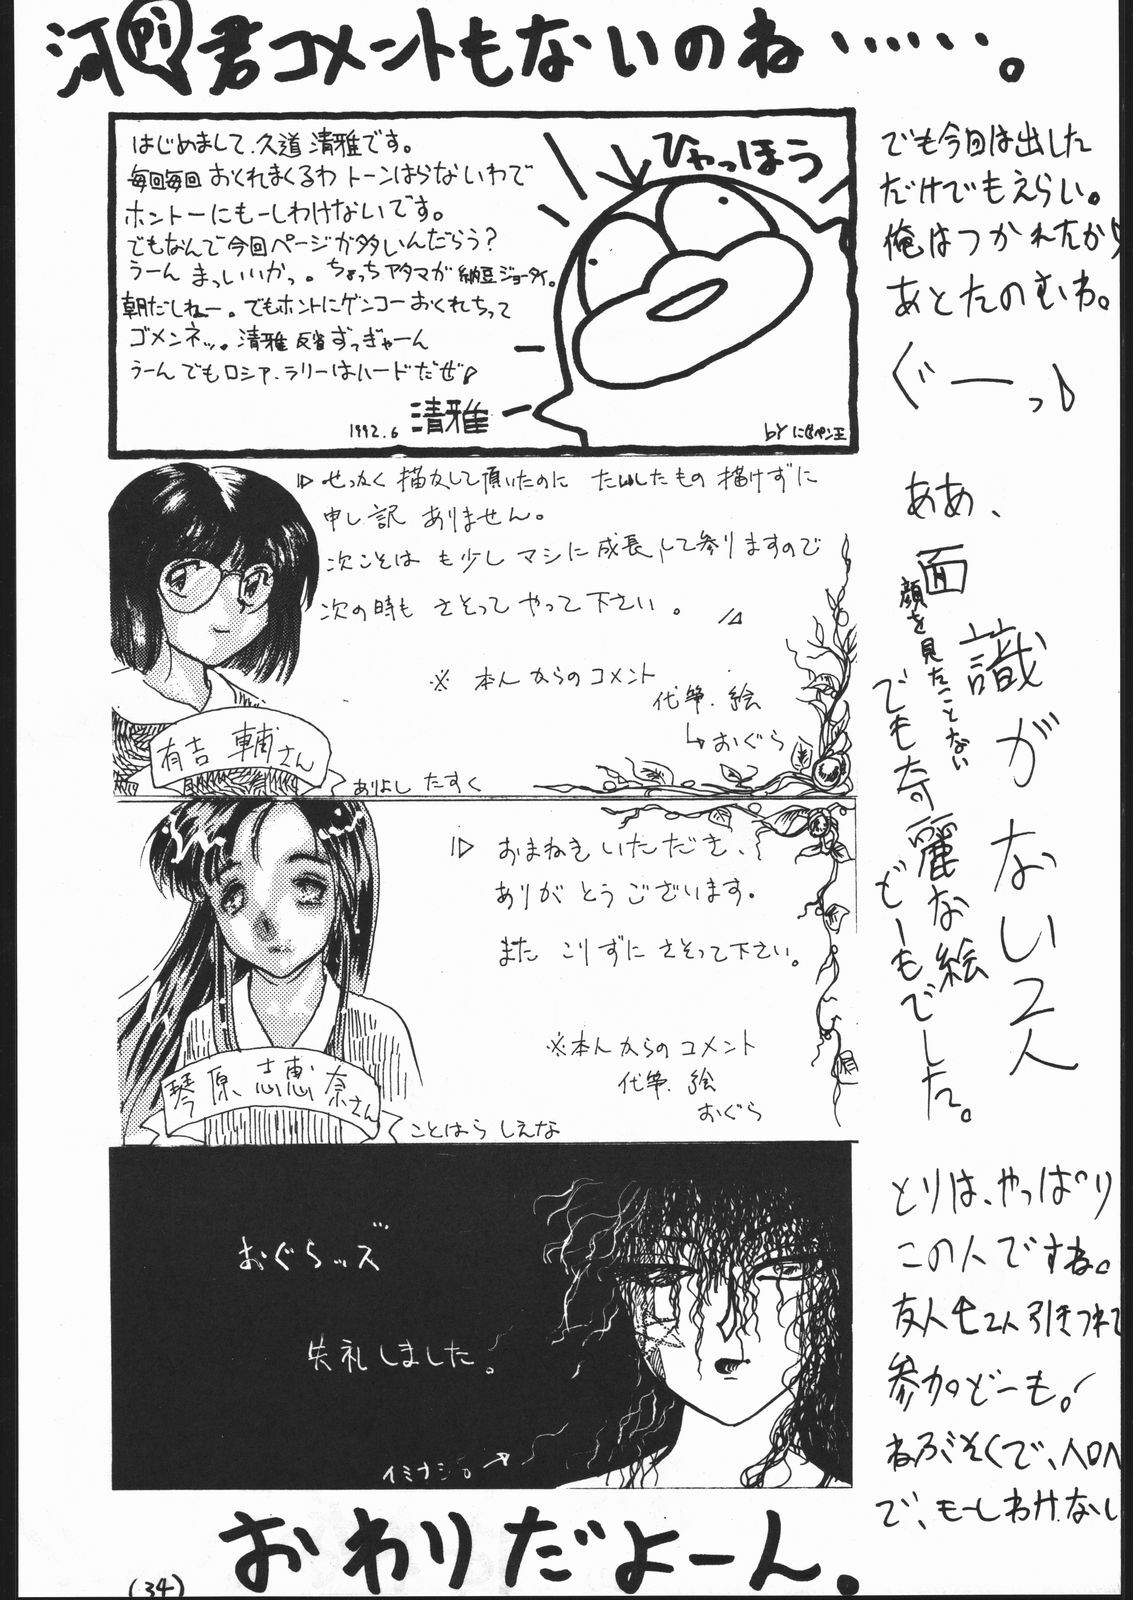 河 君コメントもないのね……。
はじめまして、久道 清雅です。
毎回毎回 おくれまくるわ トーンはらないわで
ホントーにもーしわけないです。
でもなんで今回ページが多いんだろう?
うーん まっいいかっ。ちょっちアタマが納豆ジョータイ。
朝だしねー。でもホントにゲンコーおくれちって
ゴメンネッ。清雅 反省ずっぎゃーん
うーん でもロシア・ラリーはハードだぜ♪
1992.6 清雅
ひゃっほう
by にせペン王
でも今回は出した
だけでもえらい。
俺はつかれたから
あとたのむね。
ぐーっ♪
▷せっかく 描かして頂いたのに たいしたもの 描けずに
申し訳 ありません。
次こそは も少し マシに成長して参りますので
次の時も さそって やって下さい。
※ 本人からのコメント
代筆・絵
↳おぐら
有吉 輔さん
ありよし たすく
▷ おまねき いただき、
ありが とうございます。
また こりずに さそって下さい。
※本人からの コメント
代筆・絵
おぐら
琴原 志恵奈さん
ことはら しえな
ああ、
面識がない2人
顔を見たことない
でも奇麗な絵
どーもでした。
おぐらッズ
失礼しました。
イミナシ。
とりは、やっぱり
この人ですね。
友人を2人引きつれて
参加どーも!
ねぶそくで、ヘロヘロ
で、もーしわけなし
おわりだよーん。
(34)